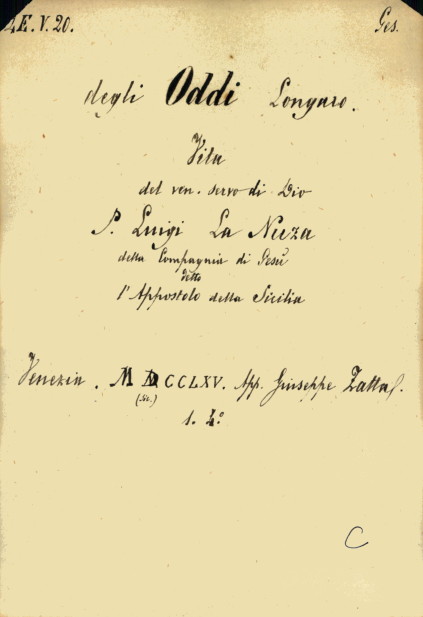 4E.V.20. Ges.
degli Oddi Longaro.
Vita
del ven. servo di Dio
P. Luigi La Nuza
della Compagnia di Gesù
detto
l'Appostolo della Sicilia
Venezia. MDCCLXV. App. Giuseppe Zatta
(sic.)
1. 4°
C